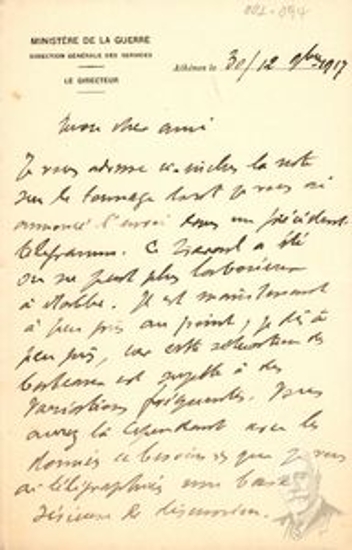 001-094
MINISTÈRE DE LA GUERRE
DIRECTION GÉNÉRALE DES SERVICES
LE DIRECTEUR
Athènes le 30/12 9bre 1917
Mon cher ami
Je vous adresse ci-inclus la note
sur le tonnage dont je vous ai
annoncé l'envoi dans un précédent
télégramme. Ce travail a été
on ne peut plus laborieux
à établir. Il est maintenant
à peu près au point ; je dis à
peu près, car cette situation des
bateaux est sujette à des
variations fréquentes. Vous
aurez là cependant avec les
données de besoins que je vous
ai télégraphiés une base
sérieuse de discussion.